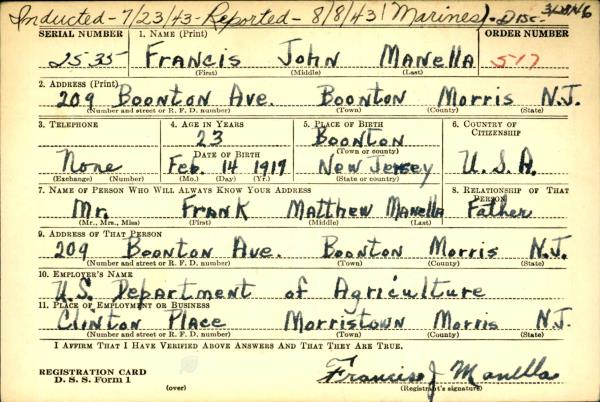 Inducted - 7/23/43 - Reported - 8/8/43 (Marines). - Disc.
SERIAL NUMBER 1. NAME (Print) ORDER NUMBER
2535 Francis John Manella 517
(First) (Middle) (Last)
2. ADDRESS (Print)
209 Boonton Ave. Boonton Morris N.J.
(Number and street or R. F. D. number) (Town) (County) (State)
3. TELEPHONE 4. AGE IN YEARS 5. PLACE OF BIRTH 6. COUNTRY OF CITIZENSHIP
23 Boonton
DATE OF BIRTH (Town or county)
None Feb. 14 1917 New Jersey U.S.A.
(Exchange) (Number) (Mo.) (Day) (Yr.) (State or country)
7. NAME OF PERSON WHO WILL ALWAYS KNOW YOUR ADDRESS 8. RELATIONSHIP OF THAT PERSON
Mr. Frank Matthew Manella Father
(Mr., Mrs., Miss) (First) (Middle) (Last)
9. ADDRESS OF THAT PERSON
209 Boonton Ave. Boonton Morris N.J.
(Number and street or R. F. D. number) (Town) (County) (State)
10. EMPLOYER'S NAME
U.S. Department of Agriculture
11. PLACE OF EMPLOYMENT OR BUSINESS
Clinton Place Morristown Morris N.J.
(Number and street or R. F. D. number) (Town) (County) (State)
I AFFIRM THAT I HAVE VERIFIED ABOVE ANSWERS AND THAT THEY ARE TRUE.
REGISTRATION CARD
D. S. S. Form 1 (over)
Francis J Manella
(Registrant's signature)